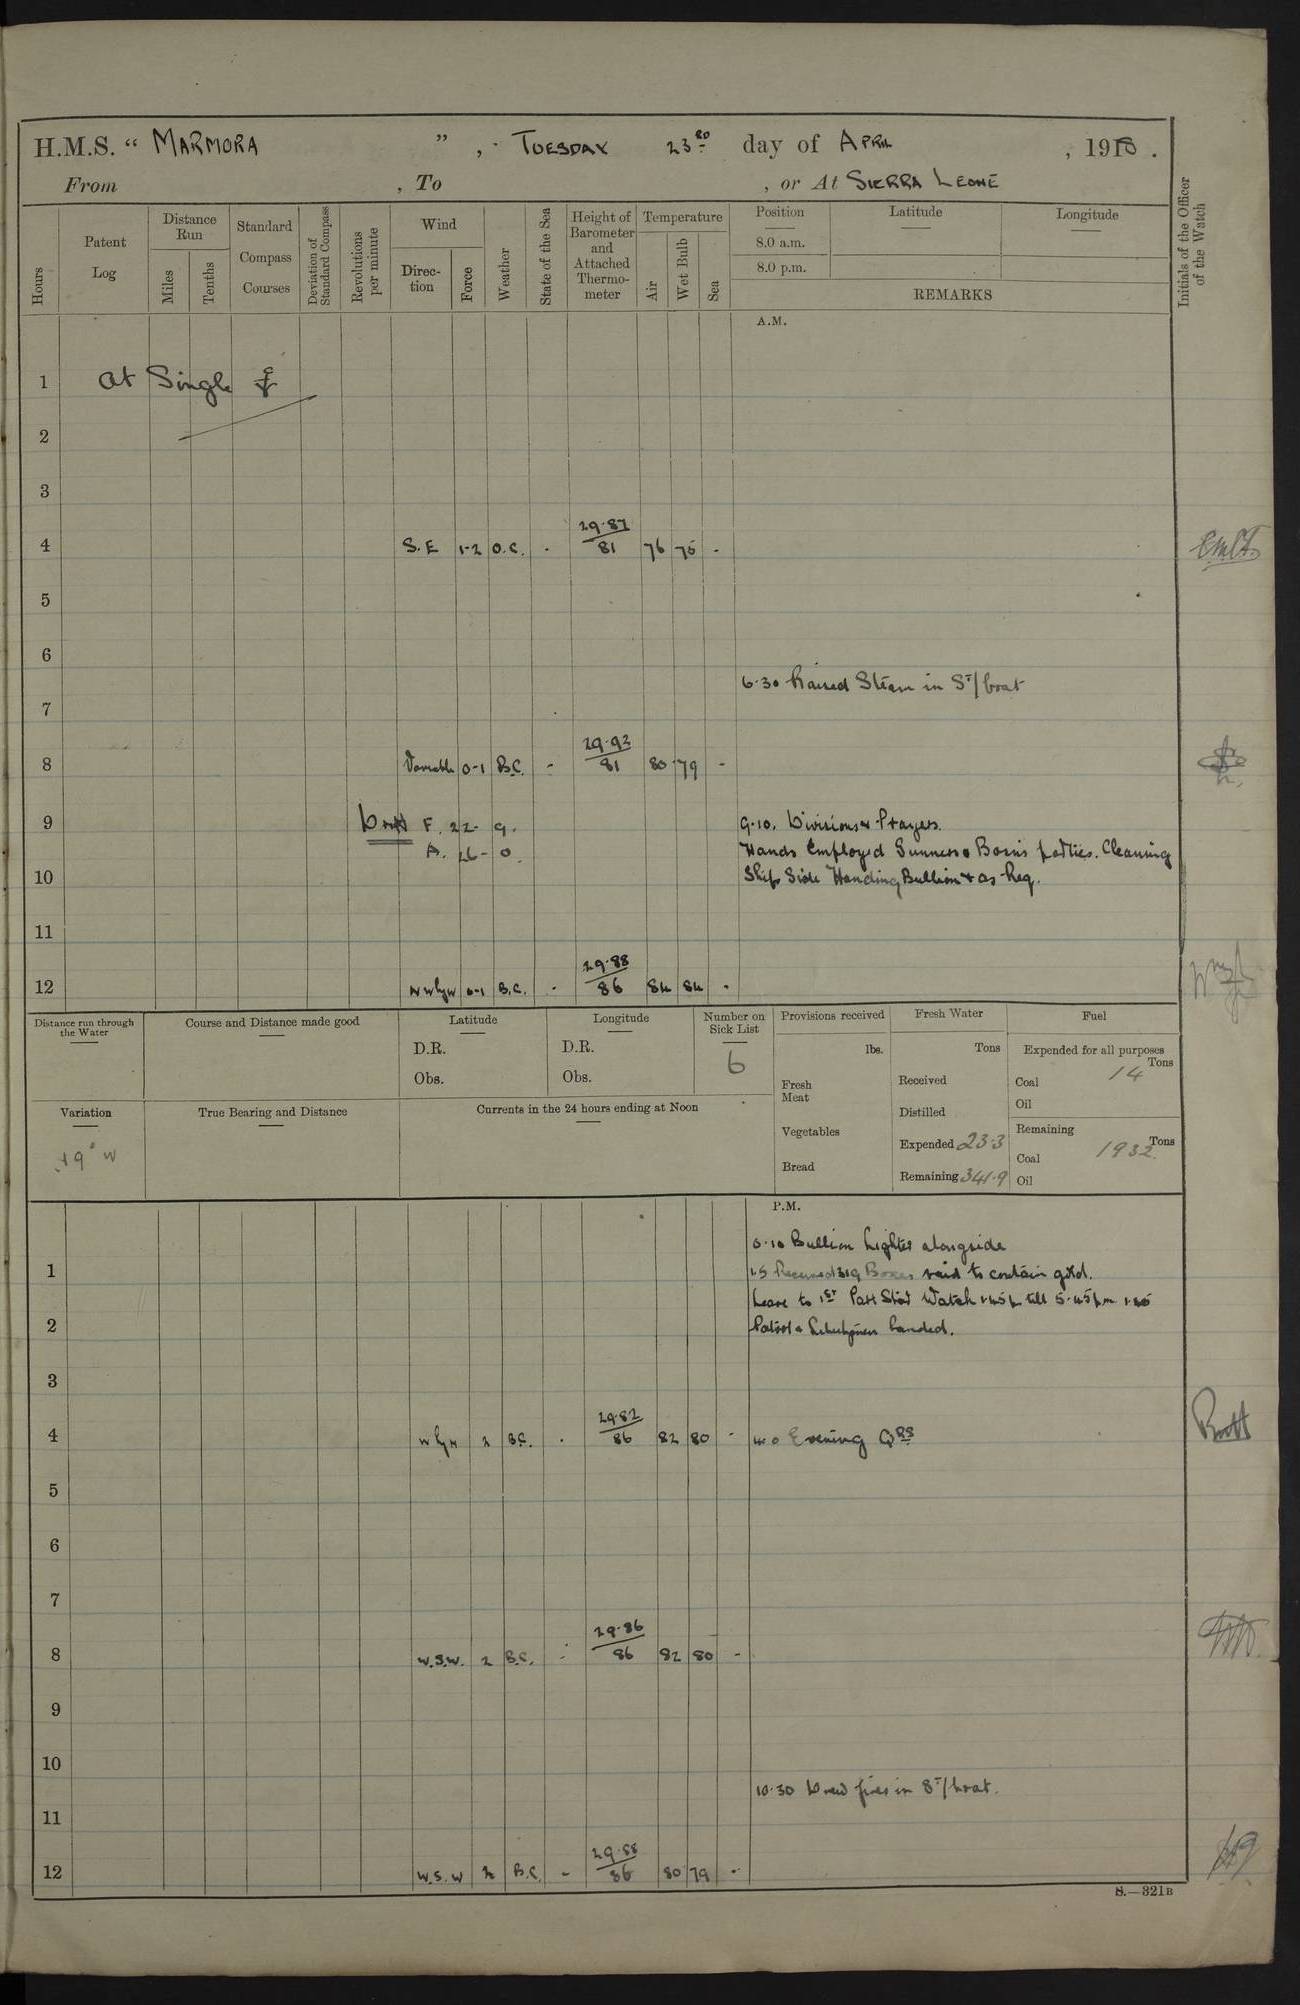 H.M.S. “ MARMORA ” , TUESDAY 23RD day of APRIL , 1918 .
From , To , or At SIERRA LEONE
Hours
Patent Log
Distance Run
Miles
Tenths
Standard Compass Courses
Deviation of Standard Compass
Revolutions per minute
Wind
Direction
Force
Weather
State of the Sea
Height of Barometer and Attached Thermometer
Temperature
Air
Wet Bulb
Sea
Position
8.0 a.m.
8.0 p.m.
Latitude
Longitude
REMARKS
Initials of the Officer of the Watch
A.M.
1 At Single
2
3
29.87
4 S.E 1-2 O.C. - 81 76 75 -
5
6
6.30 Raised Steam in St/boat
7
29.92
8 Variable 0-1 B.C. - 81 80 79 -
9 F. 22- 9. 9.10. Divisions & Prayers.
A. 26- 0. Hands Employed Gunners & Bosn's parties. Cleaning
10 Ship Side Handing Bullion & as Req.
11
29.88
12 NWbyW 0-1 B.C. - 86 84 84 -
Distance run through the Water
Course and Distance made good
Latitude
D.R.
Obs.
Longitude
D.R.
Obs.
Number on Sick List
6
Provisions received
lbs.
Fresh Meat
Vegetables
Bread
Fresh Water
Tons
Received
Distilled
Expended 23.3
Remaining 341.9
Fuel
Expended for all purposes
Tons
Coal 14
Oil
Remaining
Tons
Coal 1932
Oil
Variation
19° W
True Bearing and Distance
Currents in the 24 hours ending at Noon
P.M.
0.10 Bullion Lighter alongside
1 1.5 Received 319 Boxes said to contain gold.
Leave to 1st Part Stbd Watch 1.45p till 5.45pm
2 Patrol & landed.
3
29.82
4 WbyN 2 B.C. - 86 82 80 - 4.0 Evening QRS
5
6
7
29.86
8 W.S.W. 2 B.C. - 86 82 80 -
9
10
10.30 Drew fires in St/boat.
11
29.88
12 W.S.W 2 B.C. - 86 80 79 -
S.—321B